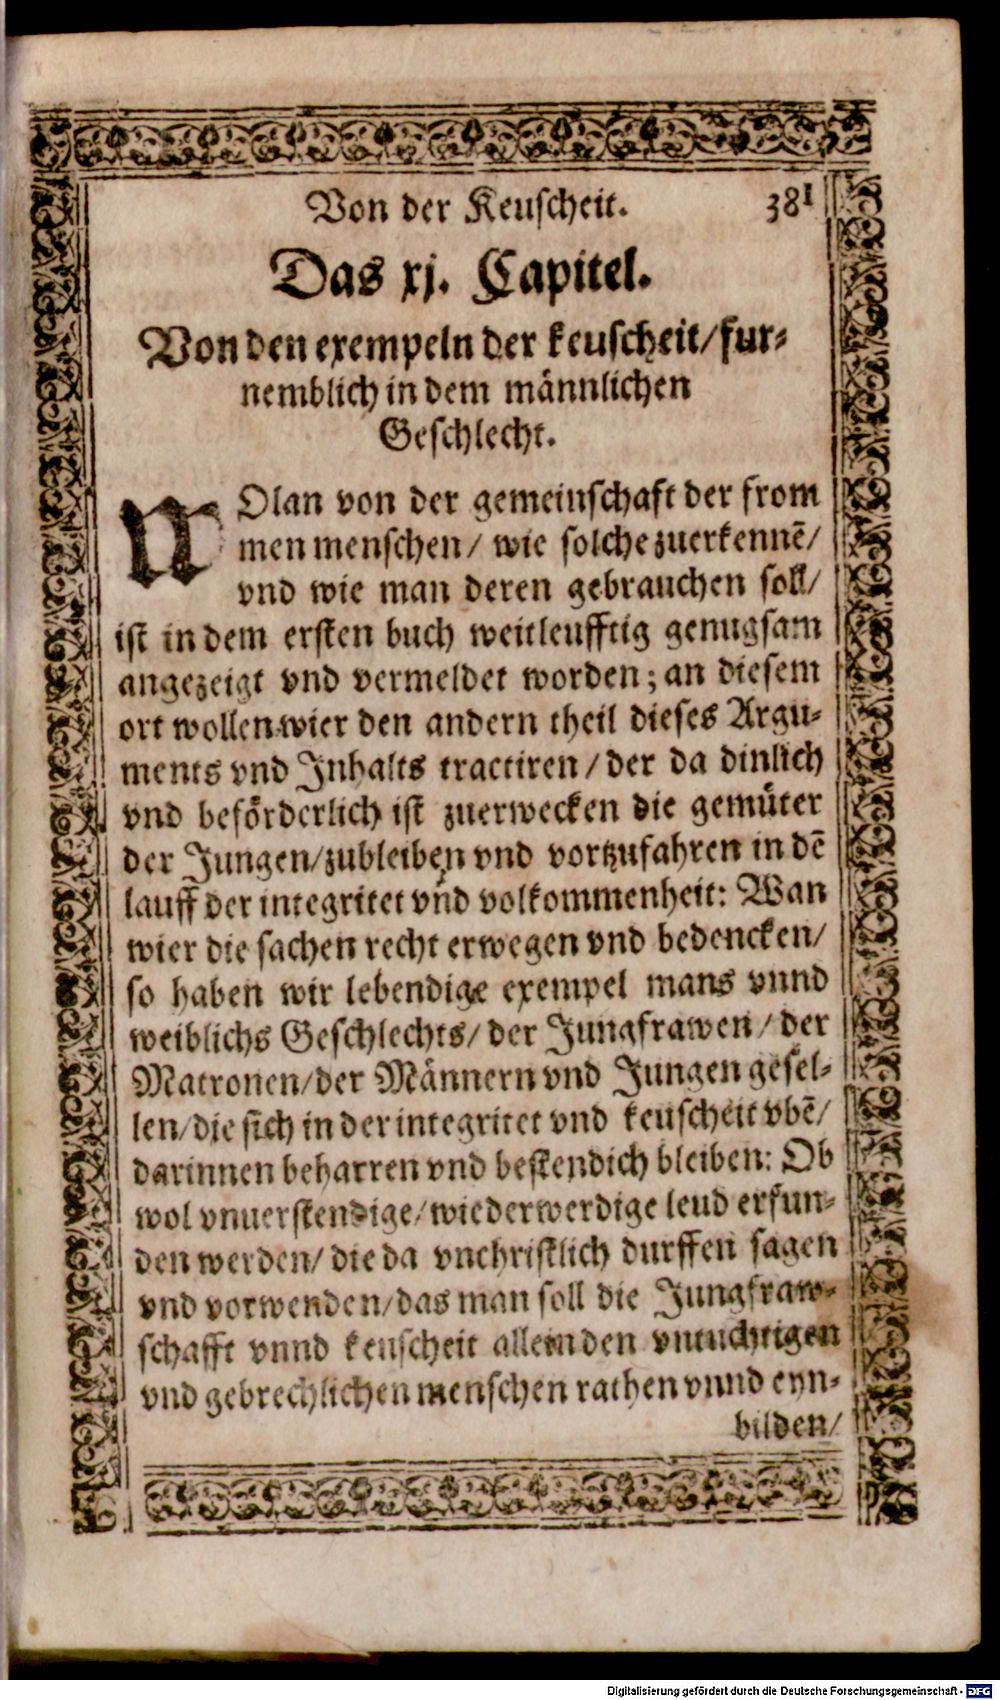 Von der Keuscheit. 381
Das xj. Capitel.
Von den exempeln der keuscheit/fur⸗
nemblich in dem männlichen
Geschlecht.
WOlan von der gemeinschaft der from
men menschen/ wie solche zuerkennē/
vnd wie man deren gebrauchen soll/
ist in dem ersten buch weitleufftig genugsam
angezeigt vnd vermeldet worden; an diesem
ort wollen wier den andern theil dieses Argu⸗
ments vnd Inhalts tractiren/der da dinlich
vnd beförderlich ist zuerwecken die gemüter
der Jungen/zubleiben vnd vortzufahren in dē
lauff der integritet vnd volkommenheit: Wan
wier die sachen recht erwegen vnd bedencken/
so haben wir lebendige exempel mans vnnd
weiblichs Geschlechts/ der Jungfrawen/ der
Matronen/der Männern vnd Jungen gesel⸗
len/die sich in der integritet vnd keuscheit vbē/
darinnen beharren vnd bestendich bleiben: Ob
wol vnuerstendige/wiederwerdige leud erfun⸗
den werden/ die da vnchristlich durffen sagen
vnd vorwenden/das man soll die Jungfraw⸗
schafft vnnd keuscheit allein den vntuchtigen
vnd gebrechlichen menschen rathen vnnd eyn⸗
bilden/
Digitalisierung gefördert durch die Deutsche Forschungsgemeinschaft - DFG